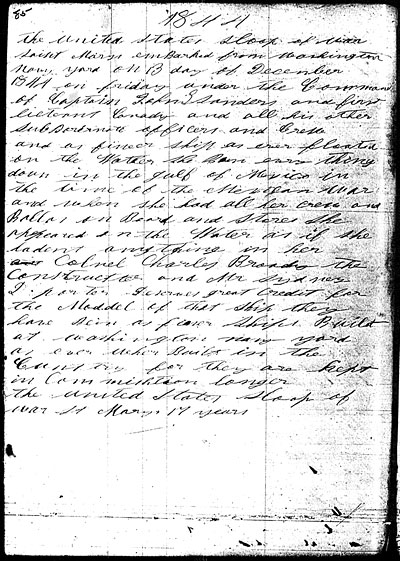 85
1844
the United States Sloop of War
Saint Marys embarked from Washington
navy yard on 13 day of December
1844 on friday under the Command
of Captain John Sanders and first
and all his other
Subordinate officers and Crew
and as finer Ship as ever floated
on the Water She Ran every thing
down in the gulf of Mexico in
the time of the Mexican War
and when she had all her crew and
Ballas on Board and Stores She
appeared on the Water as if she
hadent anything in her
Colnel Charles the
Constructor and Mr Sidney
Deserves great Credit for
the Moddel of that Ship they
have as Ships Built
at Washington navy yard
as ever wher Built in the
Cunstry for they are kept
in Commishtion longer
the United States Sloop of
War St Marys 17 years